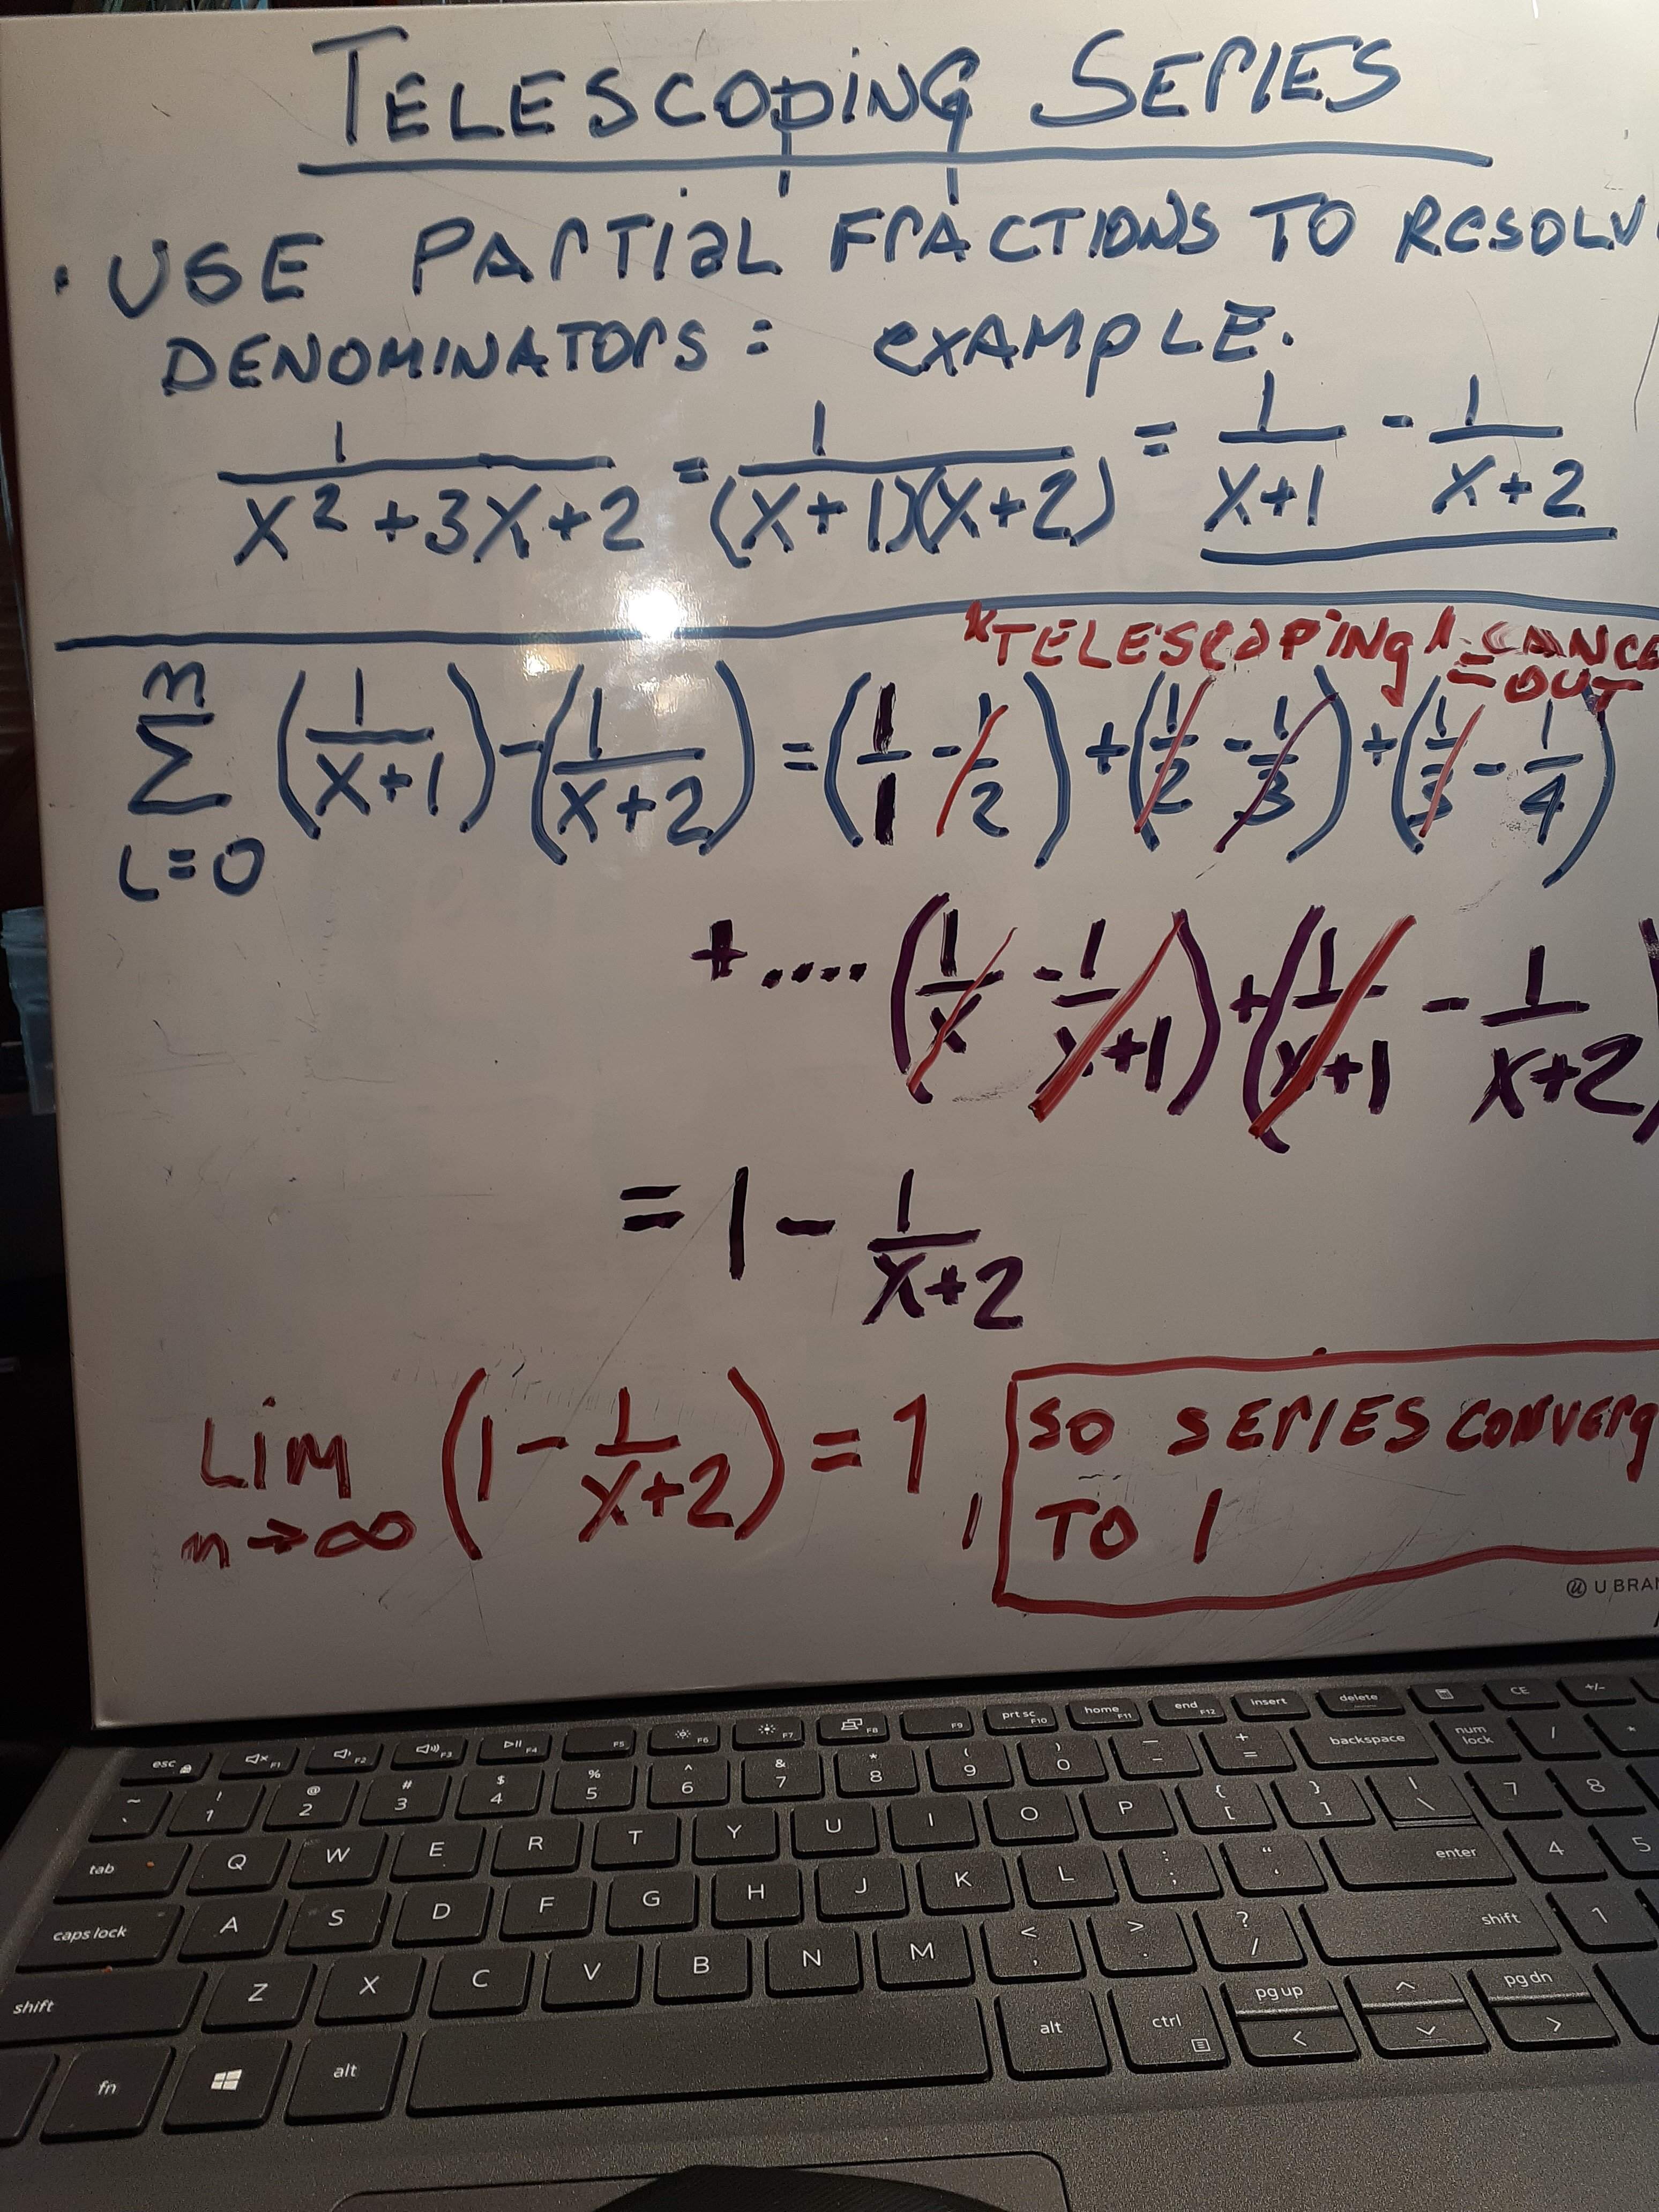 TELESCOPING SERIES
• USE PARTIAL FRACTIONS TO RESOLV
DENOMINATORS: EXAMPLE.
1/(x²+3x+2) = 1/((x+1)(x+2)) = 1/(x+1) - 1/(x+2)
*TELESCOPING* = CANCE
OUT
n Σ i=0 (1/(x+1)) - (1/(x+2)) = (1/1 - 1/2) + (1/2 - 1/3) + (1/3 - 1/4)
+.... (1/x - 1/(x+1)) + (1/(x+1) - 1/(x+2))
= 1 - 1/(x+2)
LIM n→∞ (1 - 1/(x+2)) = 1,
SO SERIES CONVERG
TO 1
U BRAN
esc F1 F2 F3 F4 F5 F6 F7 F8 F9 prt sc F10 home F11 end F12 insert delete CE +/-
~ ` ! 1 @ 2 # 3 $ 4 % 5 ^ 6 & 7 * 8 ( 9 ) 0 _ - + = backspace num lock / *
tab Q W E R T Y U I O P { [ } ] | \ 7 8
caps lock A S D F G H J K L : ; " ' enter 4 5
shift Z X C V B N M < , > . ? / shift 1
fn alt alt ctrl pg up < ^ v pg dn >